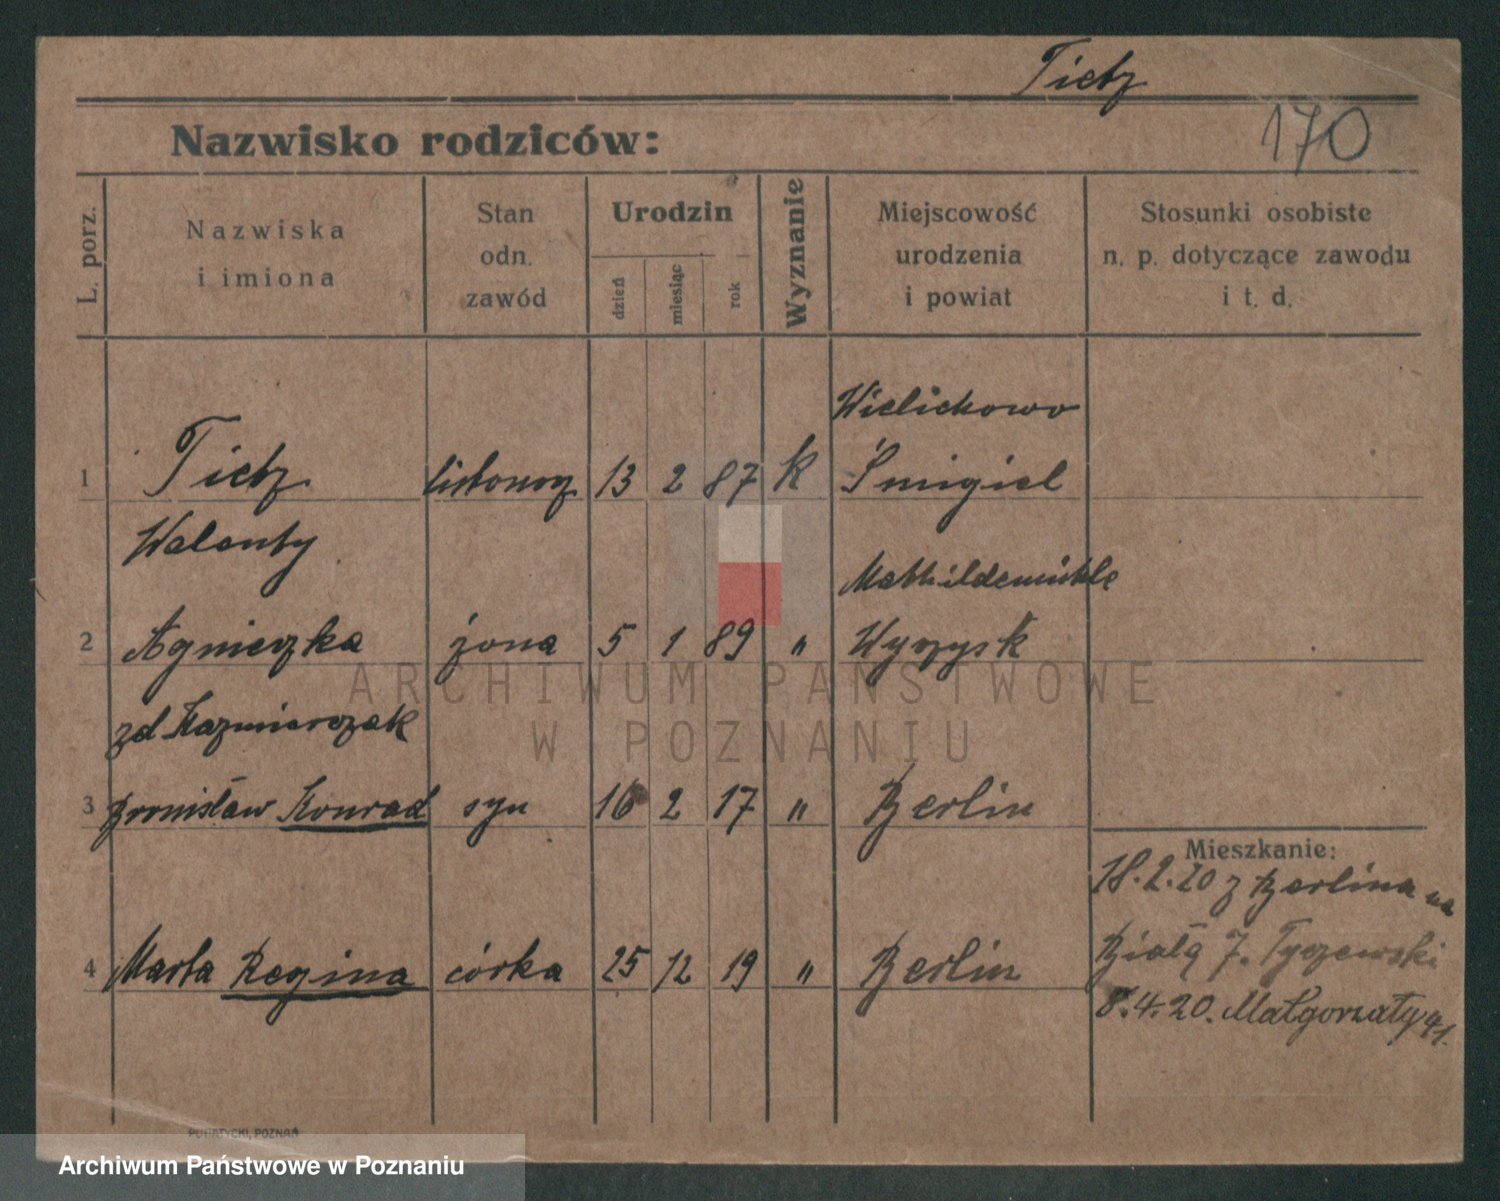 Tietz
170
Nazwisko rodziców:
L. porz.
Nazwiska
i imiona
Stan
odn.
zawód
Urodzin
dzień
miesiąc
rok
Wyznanie
Miejscowość
urodzenia
i powiat
Stosunki osobiste
n. p. dotyczące zawodu
i t. d.
Wielichowo
1 Tietz listonosz 13 2 87 k Śmigiel
Walenty
Mathildemühle
2 Agnieszka żona 5 1 89 " Wyrzysk
zd Kaźmierczak
3 Bronisław Konrad syn 16 2 17 " Berlin
Mieszkanie:
18.2.20 z Berlina na
4 Marta Regina córka 25 12 19 " Berlin
Białą 7. Tyczewski
8.4.20. Małgorzaty
ARCHIWUM PAŃSTWOWE
W POZNANIU
PUTIATYCKI, POZNAŃ
Archiwum Państwowe w Poznaniu